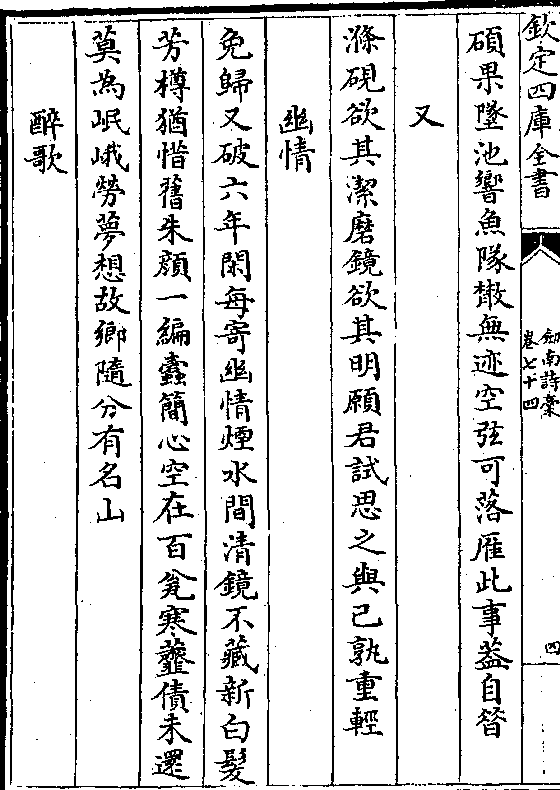 欽定四庫全書
劍南詩藁
卷七十四
四
碩果墜池響魚隊散無迹空弦可落雁此事葢自昔
又
滌硯欲其潔磨鏡欲其明願君試思之與己孰重輕
幽情
免歸又破六年閑每寄幽情煙水間清鏡不藏新白髮
芳樽猶惜舊朱顔一編蠹簡心空在百瓮寒虀債未還
莫為岷峨勞夢想故鄉隨分有名山
醉歌